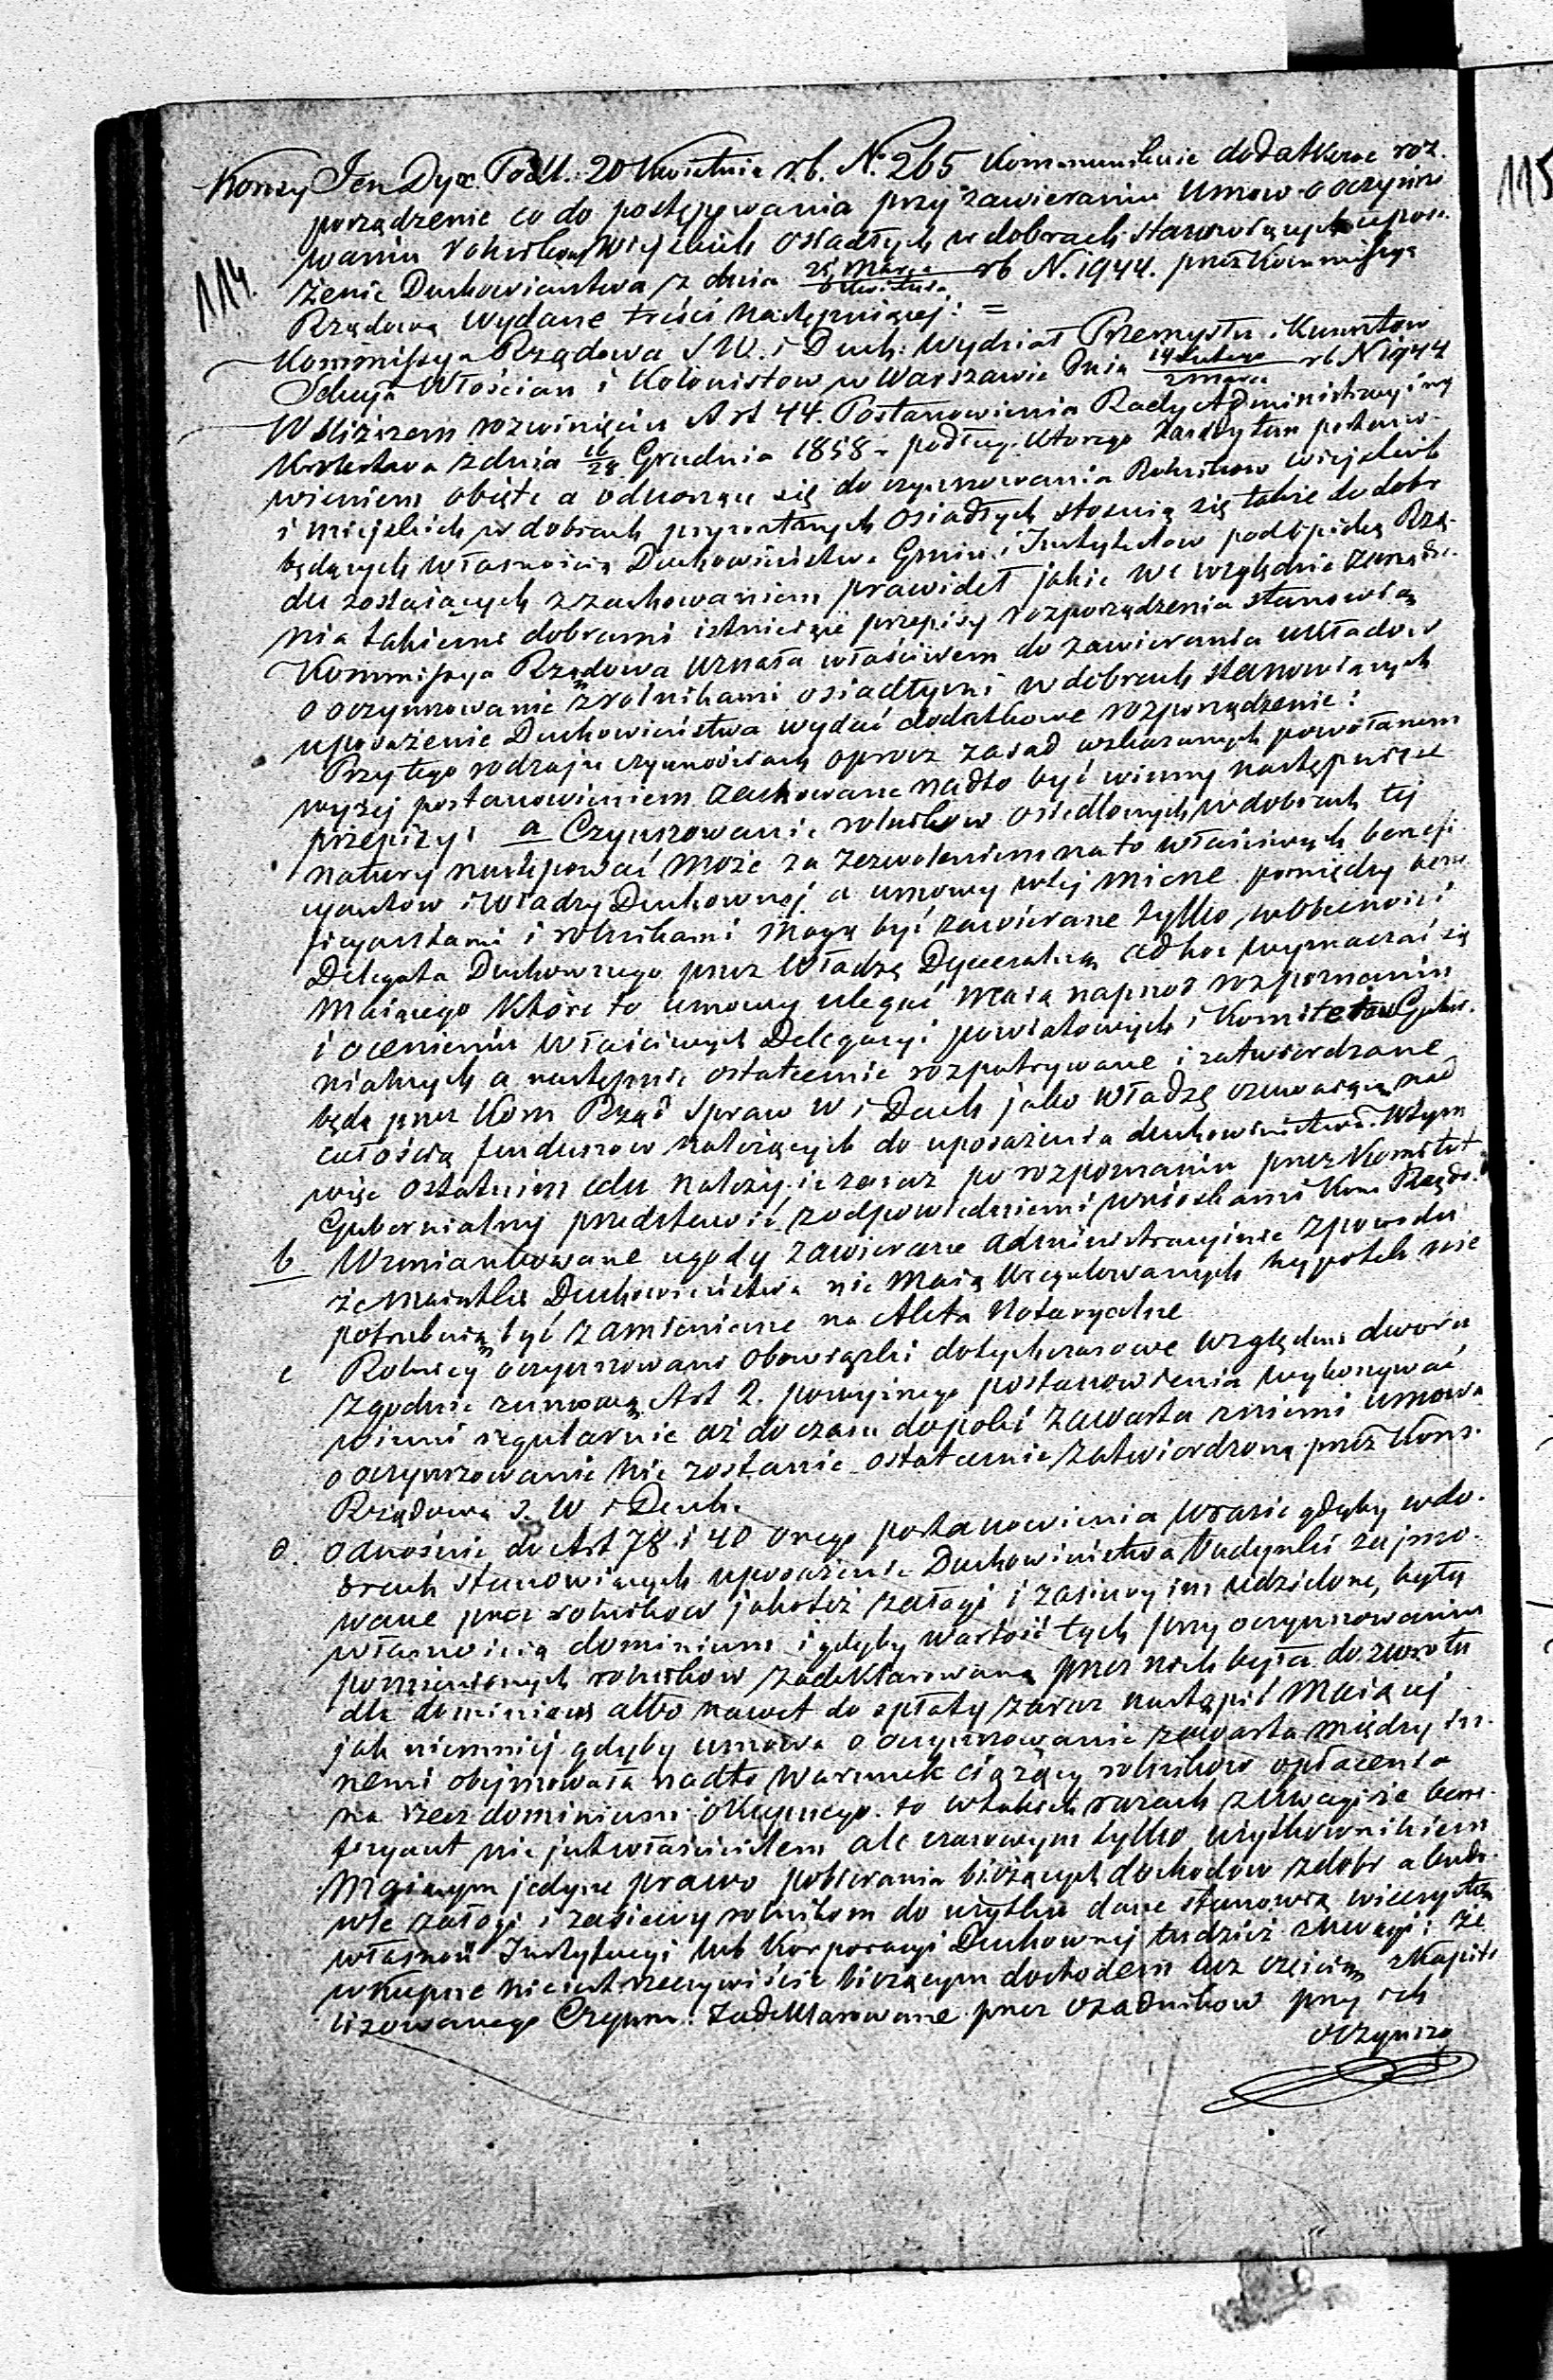 Konsy Jen Dyec. Podl. 20 Kwietnia r.b. N. 265 Kommunikuie dodatkowe roz-
115
porządzenie co do postępywania przy zawieraniu Umow o oczynszo
waniu rolnikow Wiejskich osiadłych w dobrach stanowiących upos.
114.
żenie Duchowieństwa z dnia 25 Marca rb N. 1944. przez Kommissya
Rządową Wydane treści następuiącej: =
Kommissya Rządowa S W. i Duch: Wydział Przemysłu i Kunsztow
Sekcyja Włościan i Kolonistow w Warszawie dnia 14 Lutego / 2 Marca rb N 1944
W bliższem rozwinięciu Art 44. Postanowienia Rady Administracyjney
Krolestwa z dnia 16/28 Grudnia 1858 r podług ktorego zasady tem postano-
wieniem objęte a odnosząc się do czynszowania Rolnikow wiejskich
i miejskich w dobrach prywatnych osiadłych stosuią się także do dobr
będących własnością Duchowieństwa Gmin i Instytutow pod Opieką Rzą-
du zostaiących z zachowaniem prawideł jakie we względzie zarządza-
nia takiemi dobrami istnieiące przepisy rozporządzenia stanowią
Kommissya Rządowa uznała właściwem do zawierania układow
o oczynszowanie z rolnikami osiadłymi w dobrach stanowiących
uposażenie Duchowieństwa wydać dodatkowe rozporządzenie:
Przy tego rodzaju czynnościach oprocz zasad wskazanych powołanem
wyżej postanowieniem zachowane nadto być winny następuiące
przepisy: a Czynszowanie rolnikow osiedlonych w dobrach tej
natury następować może za zezwoleniem na to właściwych benefi
cyantow i Władzy Duchownej a umowy w tej mierze pomiędzy bene
ficyantami i rolnikami mogą być zawierane tylko w obecności
Delegata Duchownego przez Władzę Dyecezalną ad hoc wyznaczać się
maiącego Które to umowy ulegać maią naprzod rozpoznaniu
i ocenieniu właściwych Delegacyi powiatowych i Komitetow Guber-
nialnych a następnie ostatecznie rozpatrywane i zatwierdzane
będą przez Kom Rząd Spraw W i Duch jako władzę czuwaiącą nad
całością funduszow należących do uposażenia duchowieństwa. W tym
więc ostatnim celu należy je zaraz po rozpoznaniu przez Komitet
Gubernialny przedstawić z odpowiedniemi wnioskami Kom Rządo.
b. Wzmiankowane ugody zawierane administracyjnie z powodu
że Maiątki Duchowieństwa nie maią uregulowanych hypotek nie
potrzebuią być zamieniane na Akta Notaryalne
c Rolnicy oczynszowani obowiązki dotychczasowe względem dworu
zgodnie z umową Art 2. powyższego postanowienia wykonywać
winni regularnie aż do czasu dopoki zawarta z niemi umowa
o oczynszowanie nie zostanie ostatecznie zatwierdzoną przez Kom.
Rządową S. W i Duch.
d. odnośnie do Art 78 i 40 onego postanowienia w razie gdyby w do-
brach stanowiących uposażenie Duchowieństwa budynki zajmo-
wane przez rolnikow jakoteż załogi i zasiewy im udzielone, były
własnością dominium i gdyby wartość tych przy oczynszowaniu
pomienionych rolnikow zadeklarowaną przez nich była do zwrotu
dla dominium albo nawet do spłaty zaraz nastąpić maiącej
jak niemniej gdyby umowa o oczynszowanie zawarta między in-
nemi obejmowała nadto warunek ciążący rolnikow opłacenia
na rzecz dominium okupnego to w takich razach z uwagi że bene-
ficyant nie jest właścicielem ale czasowym tylko użytkownikiem
maiącym jedyne prawo pobierania bieżących dochodow z dobr a budo-
wle załogi i zasiewy rolnikom do użytku dane stanowią wieczystą
własność Instytucyi lub Korporacyi Duchownej tudzież z uwagi: że
wkupne nie jest rzeczywiście bieżącym dochodem lecz częścią skapita
lizowanego Czynszu. zadeklarowane przez osadnikow przy ich
oczynszo